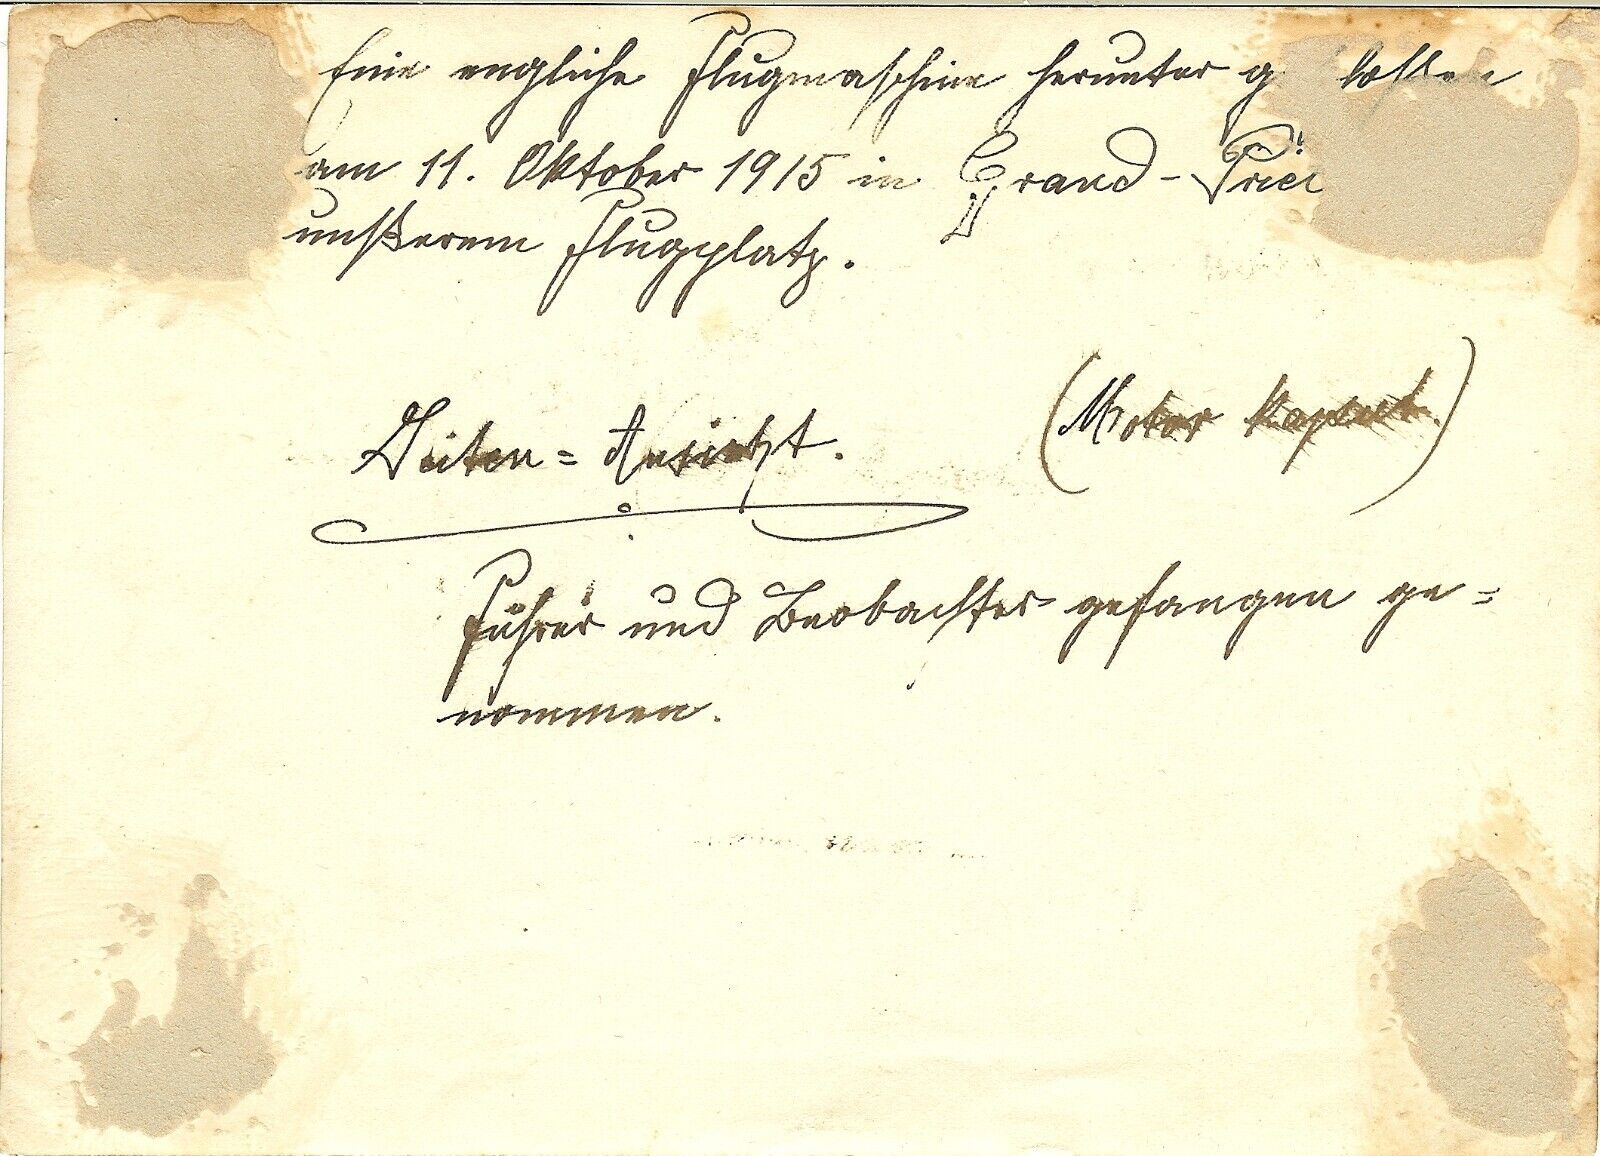 Eine engliche Flugmaschine herunter g schossen
am 11. Oktober 1915 in Grand-Priel
unßerem Flugplatz.
(Motor kaputt.)
Seiten=Ansicht.
Führer und Beobachter gefangen ge=
nommen.